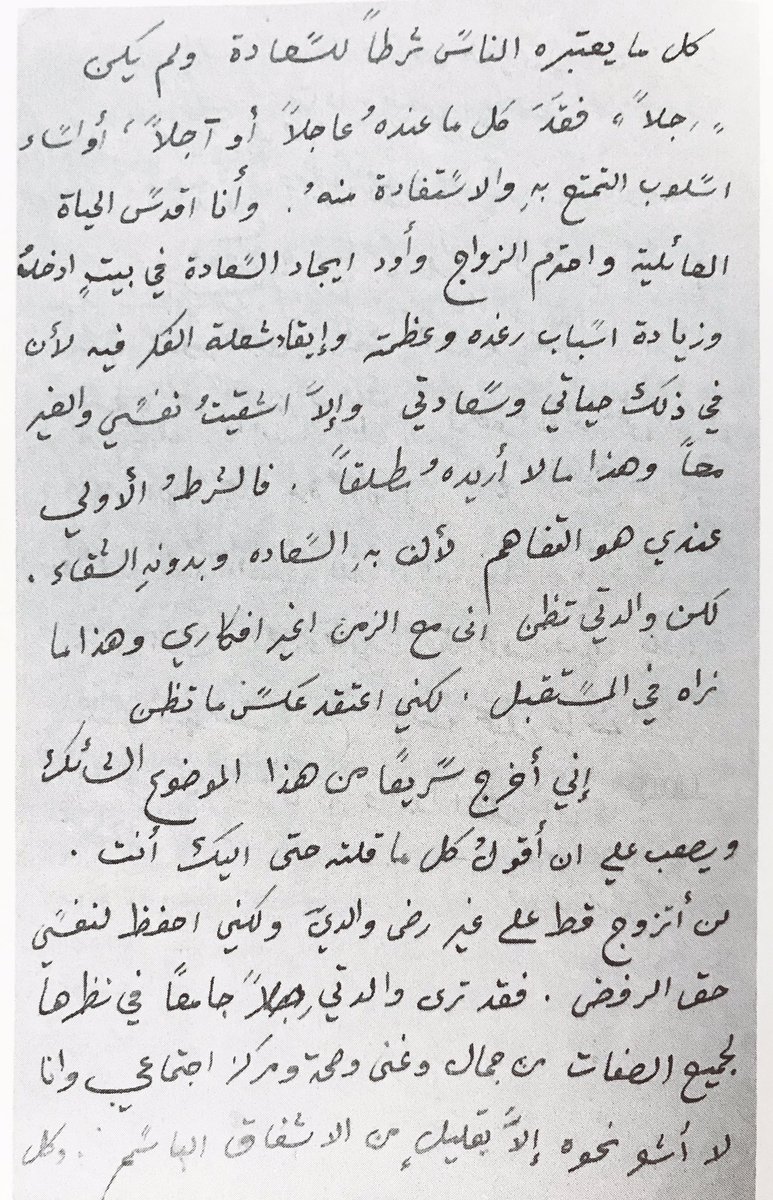 كل ما يعتبره الناس شرطاً للسعادة ولم يكن
"رجلاً" فقَدَ كل ما عندهُ عاجلاً أو آجلاً، أو أساء
اسلوب التمتع بهِ والاستفادة منهُ. وأنا اقدس الحياة
العائلية واحترم الزواج وأود ايجاد السعادة في بيتٍ ادخلهُ
وزيادة اسباب رغده وعظمته وإيقاد شعلة الفكر فيه لأن
في ذلك حياتي وسعادتي وإلاَّ اشقيتُ نفسي والغير
معاً وهذا ما لا أريدهُ مطلقاً. فالشرطُ الأولي
عندي هو التفاهم لأن بهِ السعاده وبدونهِ الشقاء.
لكن والدتي تظن انى مع الزمن اغير افكاري وهذا ما
نراه في المستقبل. لكني اعتقد عكس ما تظن
إني أخرج سريعًا من هذا الموضوع الشائك
ويصعب علي ان أقولُ كل ما قلته حتى اليك أنت.
لن أتزوج قط على غير رضى والديَّ ولكني احفظ لنفسي
حق الرفض. فقد ترى والدتي رجلاً جامعًا في نظرها
لجميع الصفات من جمال وغنى وصحة ومركز اجتماعي وانا
لا أشعر نحوه إلاَّ بقليلٍ من الاشفاق الباسم. وكل